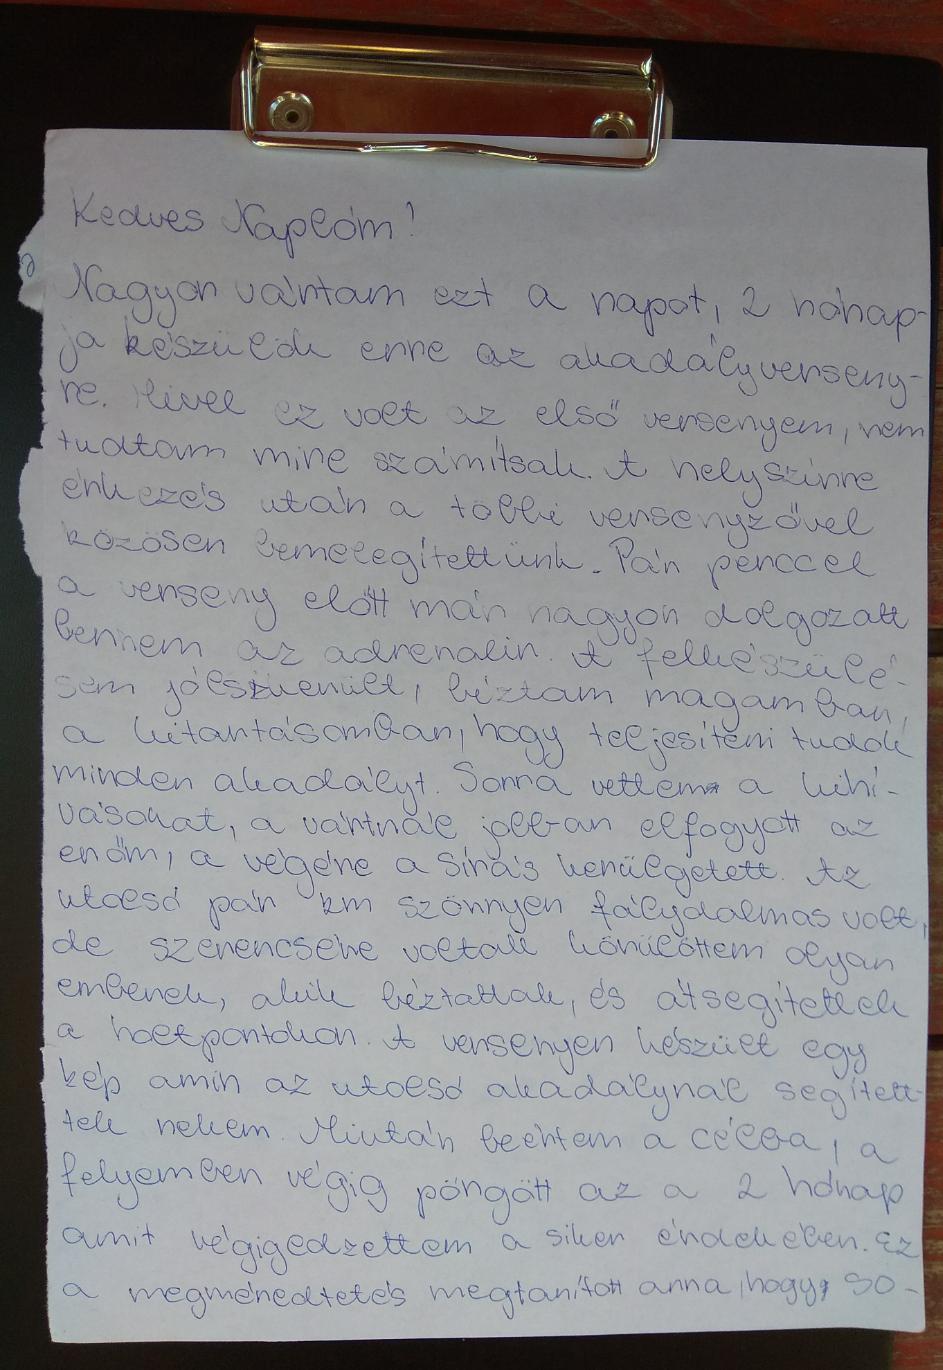 Kedves Naplóm!
Nagyon vártam ezt a napot, 2 hónap-
ja készülök erre az akadályverseny-
re. Mivel ez volt az első versenyem, nem
tudtam mire számítsak. A helyszínre
érkezés után a többi versenyzővel
közösen bemelegítettünk. Pár perccel
a verseny előtt már nagyon dolgozott
bennem az adrenalin. A felkészülé-
sem jól sikerült, bíztam magamban,
a kitartásomban, hogy teljesíteni tudok
minden akadályt. Sorra vettem a kihí-
vásokat, a vártnál jobban elfogyott az
erőm, a végére a sírás kerülgetett. Az
utolsó pár km szörnyen fájdalmas volt,
de szerencsére voltak körülöttem olyan
emberek, akik bíztattak, és átsegítettek
a holtpontokon. A versenyen készült egy
kép amin az utolsó akadálynál segített-
tek nekem. Miután beértem a célba, a
fejemben végig pörgött az a 2 hónap
amit végigedzettem a siker érdekében. Ez
a megmérettetés megtanított arra, hogy so-